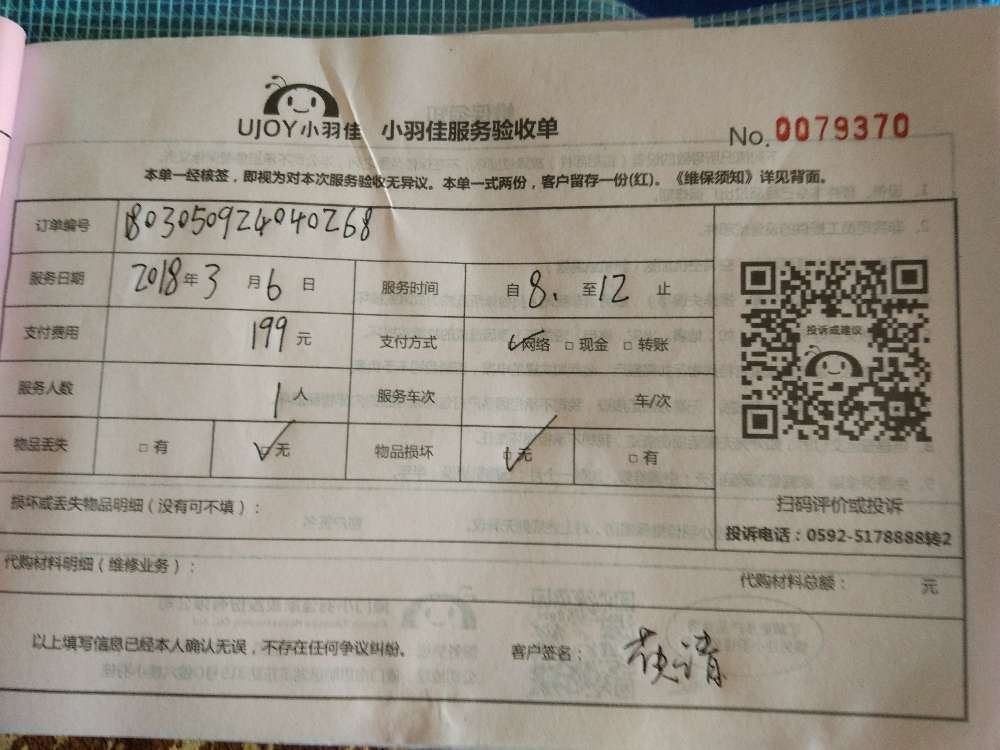 UJOY小羽佳 小羽佳服务验收单
No. 0079370
本单一经核签，即视为对本次服务验收无异议。本单一式两份，客户留存一份(红)。《维保须知》详见背面。
订单编号 1803050924040268
服务日期 2018年3月6日 服务时间 自8.至12止
支付费用 199元 支付方式 ✓网络 □现金 □转账
服务人数 1人 服务车次 车/次
物品丢失 □有 ✓无 物品损坏 ✓无 □有
投诉或建议
扫码评价或投诉
投诉电话：0592-5178888转2
损坏或丢失物品明细（没有可不填）：
代购材料明细（维修业务）：
代购材料总额： 元
以上填写信息已经本人确认无误，不存在任何争议纠纷。 客户签名：